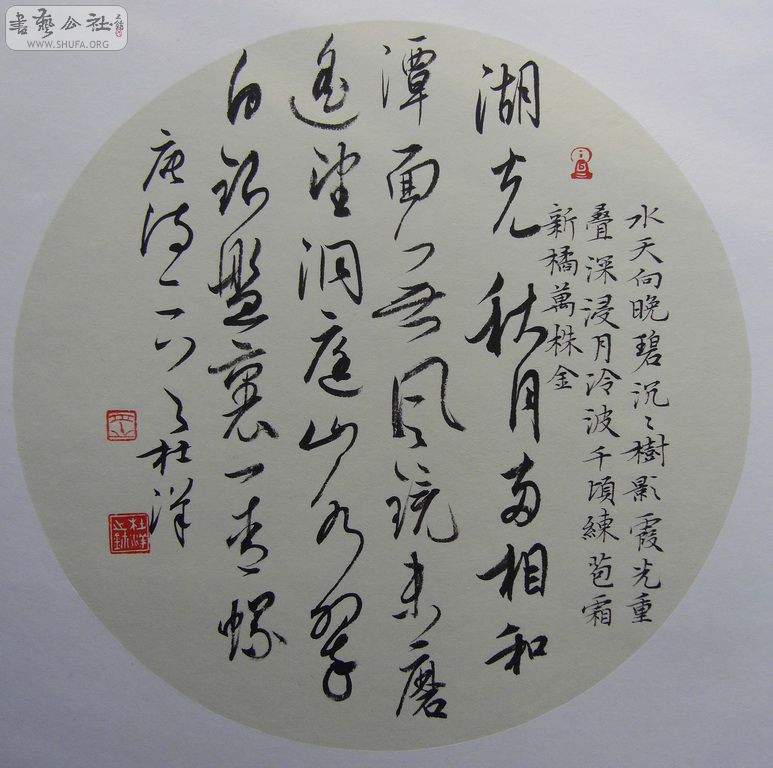 書藝公社
WWW.SHUFA.ORG
水天向晚碧沉々樹影霞光重
叠深浸月冷波千頃練苞霜
新橘萬株金
湖光秋月两相和
潭面無風鏡未磨
遥望洞庭山水翠
白銀盤裏一青螺
唐詩一首杜洋